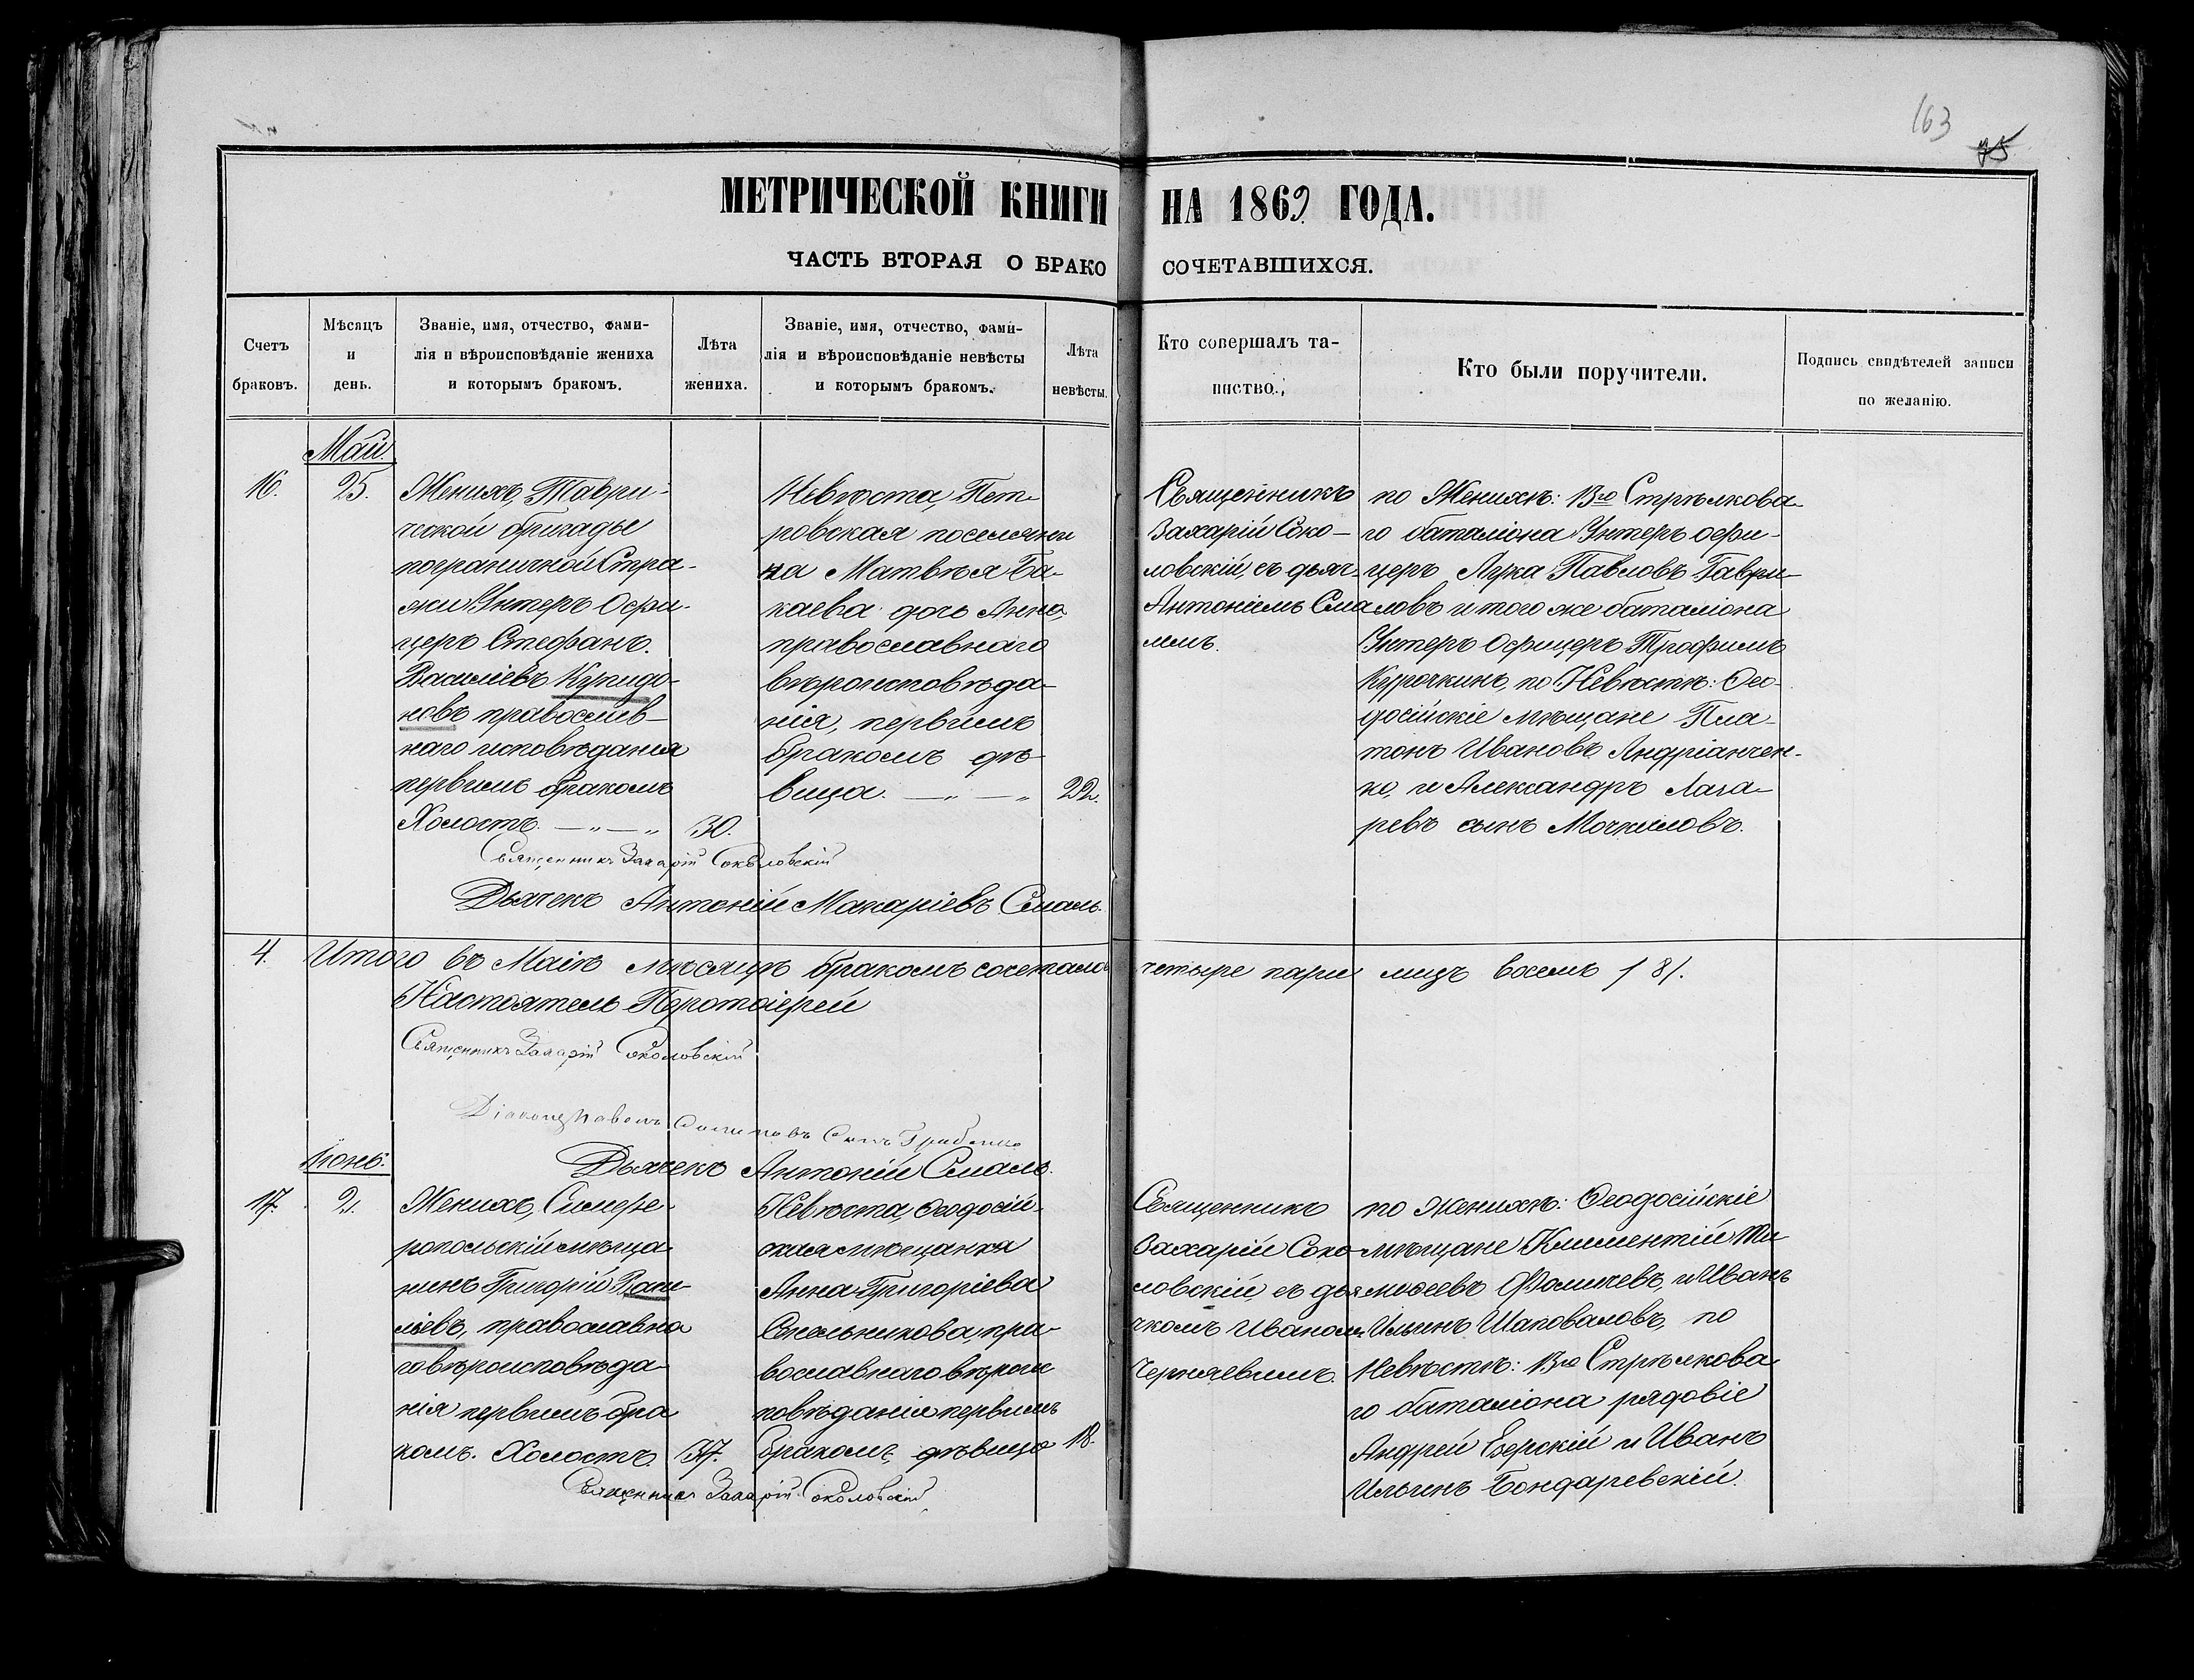 163
75
МЕТРИЧЕСКОЙ КНИГИ НА 1869 ГОДА.
ЧАСТЬ ВТОРАЯ О БРАКОСОЧЕТАВШИХСЯ.
Счетъ
браковъ.
Мѣсяцъ
и
день.
Званіе, имя, отчество, фами-
лія и вѣроисповѣданіе жениха
и которымъ бракомъ.
Лѣта
жениха.
Званіе, имя, отчество, фами-
лія и вѣроисповѣданіе невѣсты
и которымъ бракомъ.
Лѣта
невѣсты.
Кто совершалъ та-
инство.
Кто были поручители.
Подпись свидѣтелей записи
по желанію.
Май.
16.
25.
Женихъ, Таври-
ческой бригады
пограничной Стра-
жи Унтеръ Офи-
церъ Стефанъ
Василіевъ Купидо-
новъ православ-
наго исповѣданія
первымъ бракомъ
Холостъ. — „ — „
30.
Невѣста, Пет-
ровская поселянки
на Матвѣя Ба-
каева дочь Анна,
православнаго
вѣроисповѣда-
нія, первымъ
бракомъ дѣ-
вица. — „ — „
22.
Священникъ
Захарій Соко-
ловскій, съ дьяч.
Антоніемъ Сма
лемъ.
по Женихѣ: 13го Стрѣлкова-
го баталіона Унтеръ офи-
церъ Лука Павловъ Гаври-
ловъ и того же баталіона
Унтеръ Офицеръ Трофимъ
Курочкинъ, по Невѣстѣ: Ѳео-
досійскіе мѣщане Пла-
тонъ Ивановъ Андріанчен-
ко, и Александръ Лаза-
ревъ сынъ Мочкиловъ.
Священникъ Захарій Соколовскій
Дьячекъ Антоній Макаріевъ Смаль.
4.
Итого въ Маіѣ мѣсяцѣ бракомъ сочетало четыре пары лицъ восемь / 8 /.
Настоятель Протоіерей
Священникъ Захарій Соколовскій
Діаконъ Павелъ
Дьячекъ Антоній Смаль.
Іюнь.
17.
2.
Женихъ, Симфе-
ропольскій мѣща-
нинъ Григорій Васи-
льевъ, православна
го вѣроисповѣда-
нія первымъ бра
комъ. Холостъ.
37.
Невѣста, Ѳеодосій-
ская мѣщанка
Анна Григоріева
Сокольникова, пра-
вославнаго вѣроис
повѣданія первымъ
бракомъ, дѣвица
18.
Священникъ
Захарій Соко-
ловскій, съ дья
чкомъ Иваномъ
Черняевымъ.
по Женихѣ: Ѳеодосійскіе
мѣщане Климентій Ти
моѳеевъ Фомичевъ, и Иванъ
Ильинъ Шаповаловъ, по
Невѣстѣ: 13го Стрѣлкова-
го баталіона рядовіе
Андрей Езерскій и Иванъ
Ильинъ Бондаревскій.
Священникъ Захарій Соколовскій